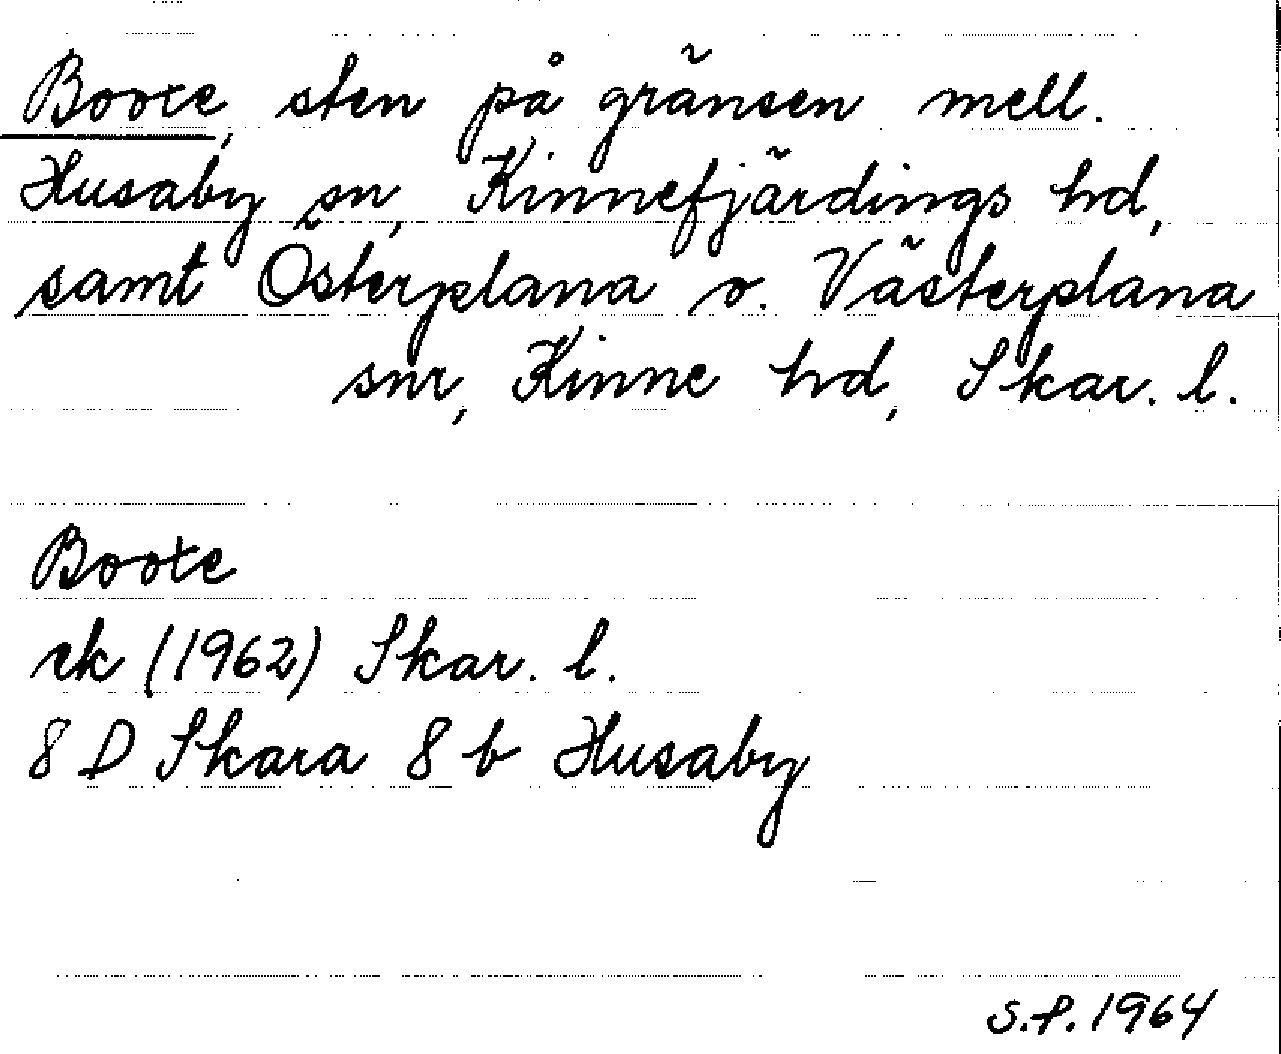 Boote, sten på gränsen mell.
Husaby sn, Kinnefjärdings hd,
samt Österplana o. Västerplana
snr, Kinne hd, Skar. l.
Boote
ek (1962) Skar. l.
8 D Skara 8 b Husaby
S.P. 1964